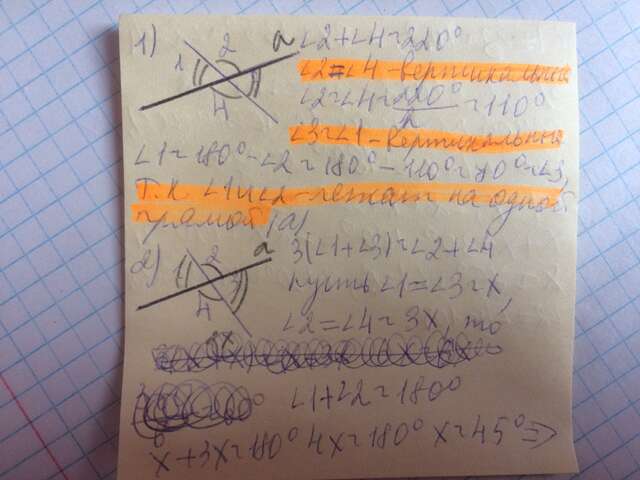 1)
2 a
1 3
4
∠2+∠4=220°
∠2=∠4 - вертикальные
∠2=∠4=220°/2=110°
∠3=∠1 - вертикальные
∠1=180°-∠2=180°-110°=70°=∠3,
т.к. ∠1 и ∠2 - лежат на одной
прямой (a)
2)
2 a
1 3
4
3(∠1+∠3)=∠2+∠4
пусть ∠1=∠3=x,
∠2=∠4=3x, то
∠1+∠2=180°
x+3x=180° 4x=180° x=45° =>